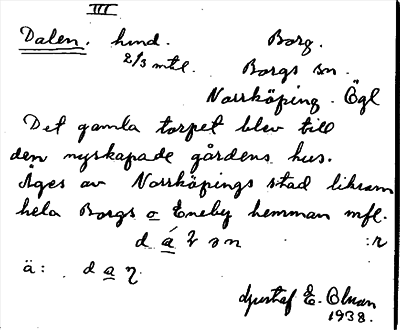 III
Dalen. hmd. Borg.
2/3 mtl. Borgs sn.
Norrköping. Ögl
Det gamla torpet blev till
den nyskapade gårdens hus.
Äges av Norrköpings stad liksom
hela Borgs o Eneby hemman mfl.
ä:
Gustaf E. Olman
1938.